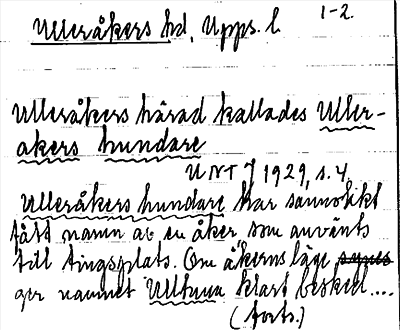 Ulleråkers hd, Upps. l. 1-2.
Ulleråkers härad kallades Uller-
akers hundare
UNT 7 1929, s. 4.
Ulleråkers hundare har sannolikt
fått namn av en åker som använts
till tingsplats. Om åkerns läge
ger namnet Ulltuna klart besked....
(forts.)